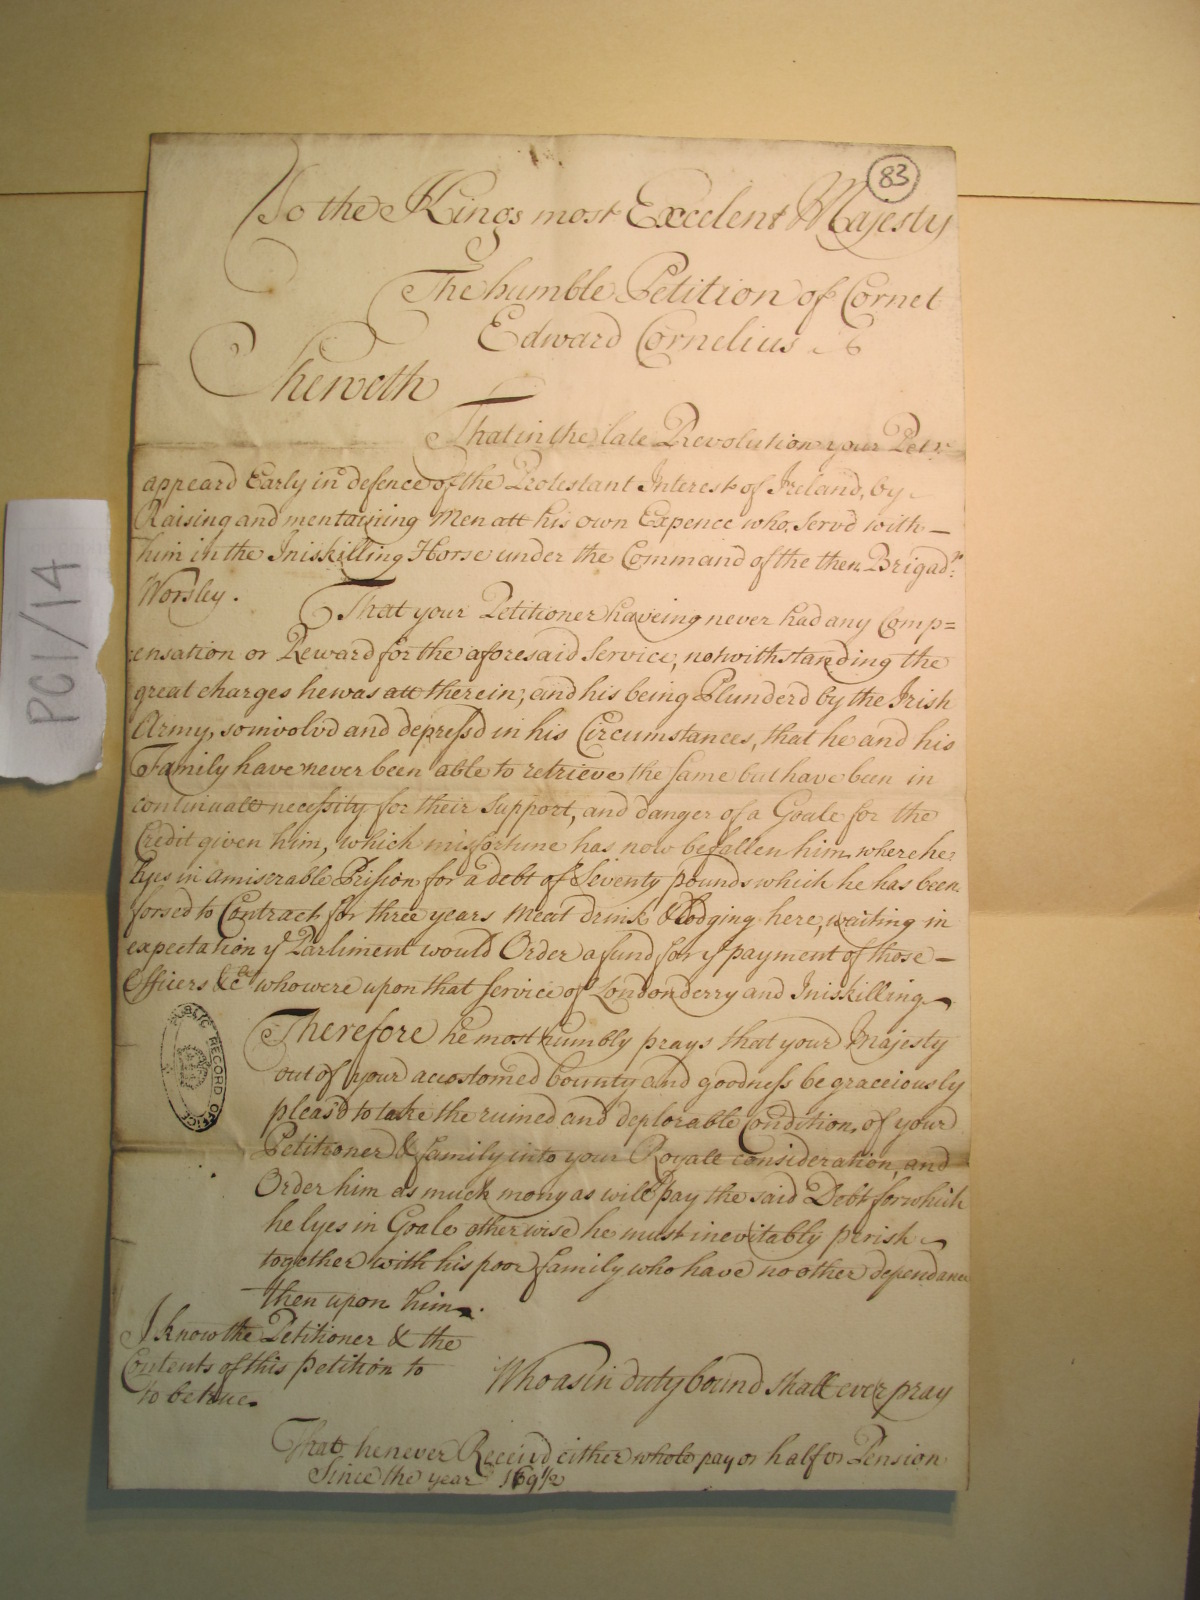 83
To the Kings most Excelent Majesty
The humble Petition of Cornet
Edward Cornelius
Sheweth
That in the late Revolution your Petr.
appeard Early in defence of the Protestant Interest of Ireland, by
Raising and mentaining Men att his own Expence who Serv'd with
him in the Iniskilling Horse under the Command of the then Brigadr.
Worsley.
That your Petitioner haveing never had any Comp=
ensation or Reward for the aforesaid Service, notwithstanding the
great charges he was att therein, and his being Plunderd by the Irish
Army, so involvd and depressd in his Circumstances, that he and his
Family have never been able to retrieve the same but have been in
continuall necessity for their Support, and danger of a Goale for the
Credit given him, which misfortune has now befallen him where he
lyes in a miserable Prission for a debt of Seventy pounds which he has been
forsed to Contract for three years Meat drink & Lodging here, waiting in
expectation ye Parliment would Order a fund for ye payment of those
Officers &ca who were upon that service of Londonderry and Iniskilling
PUBLIC RECORD OFFICE
Therefore he most humbly prays that your Majesty
out of your accostomed bounty and goodness be graceiously
pleas'd to take the ruined and deplorable Condition of your
Petitioner & family into your Royall consideration, and
Order him as much mony as will pay the said Debt for which
he lyes in Goale otherwise he must inevitably perish
together with his poor family who have no other dependance
then upon him.
I know the Petitioner & the
Contents of this petition to
to be true.
Who as in duty bound shall ever pray
That he never Receivd either whole pay or half or Pension
Since the year 169½
PC1/14